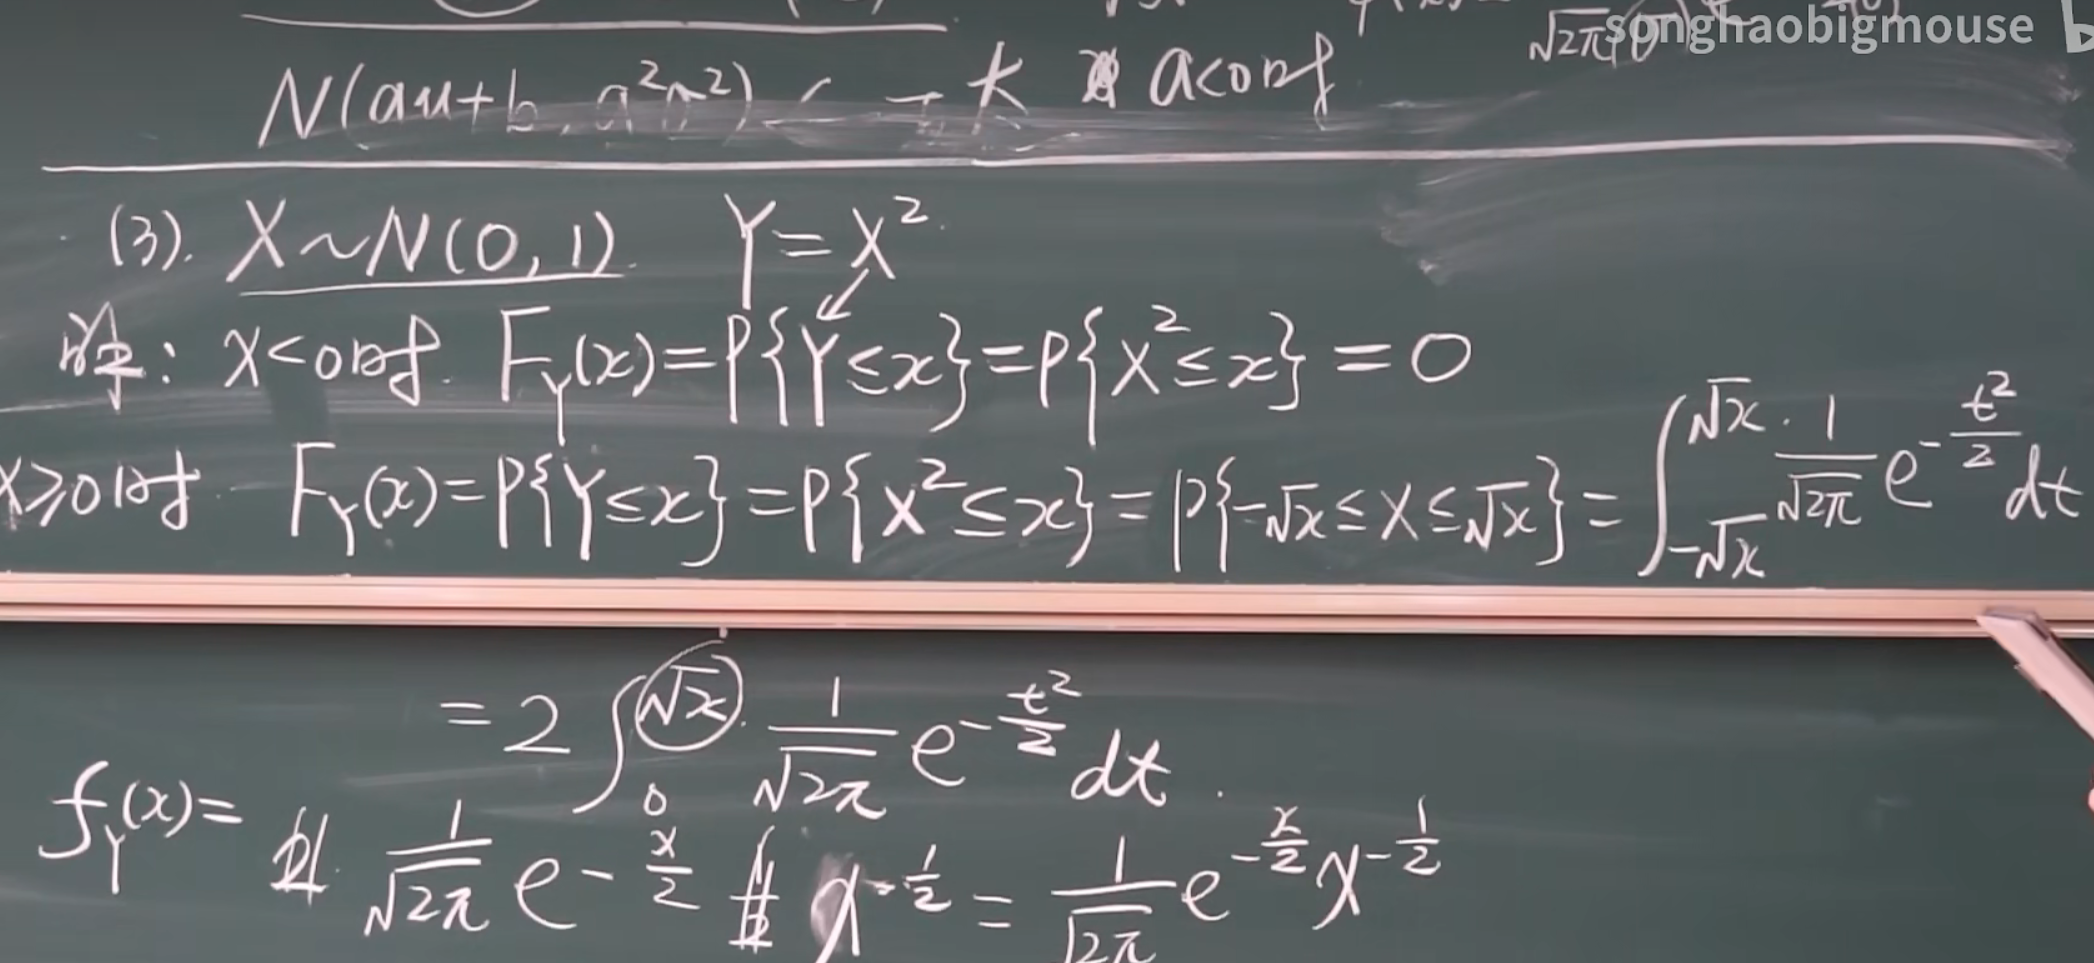 songhaobigmouse
√2π
N(au+b, a²σ²) k a<0时
(3). X~N(0,1) Y=X²
解: X<0时 F_Y(x)=P{Y≤x}=P{X²≤x}=0
X≥0时 F_Y(x)=P{Y≤x}=P{X²≤x}=P{-√x≤X≤√x}=∫_{-√x}^{√x} 1/√2π e^{-t²/2} dt
=2∫_0^{√x} 1/√2π e^{-t²/2} dt
f_Y(x)= 2 1/√2π e^{-x/2} 1/2 x^{-1/2} = 1/√2π e^{-x/2} x^{-1/2}